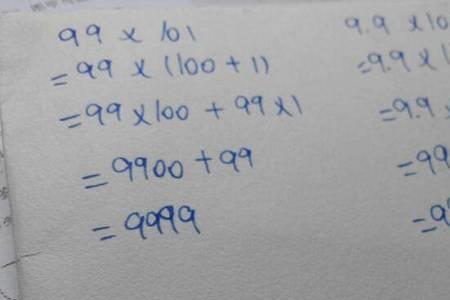 99 × 101
=99 × (100 + 1)
=99 × 100 + 99 × 1
=9900 + 99
=9999
9.9 × 10
=9.9 ×
=9.9
=99